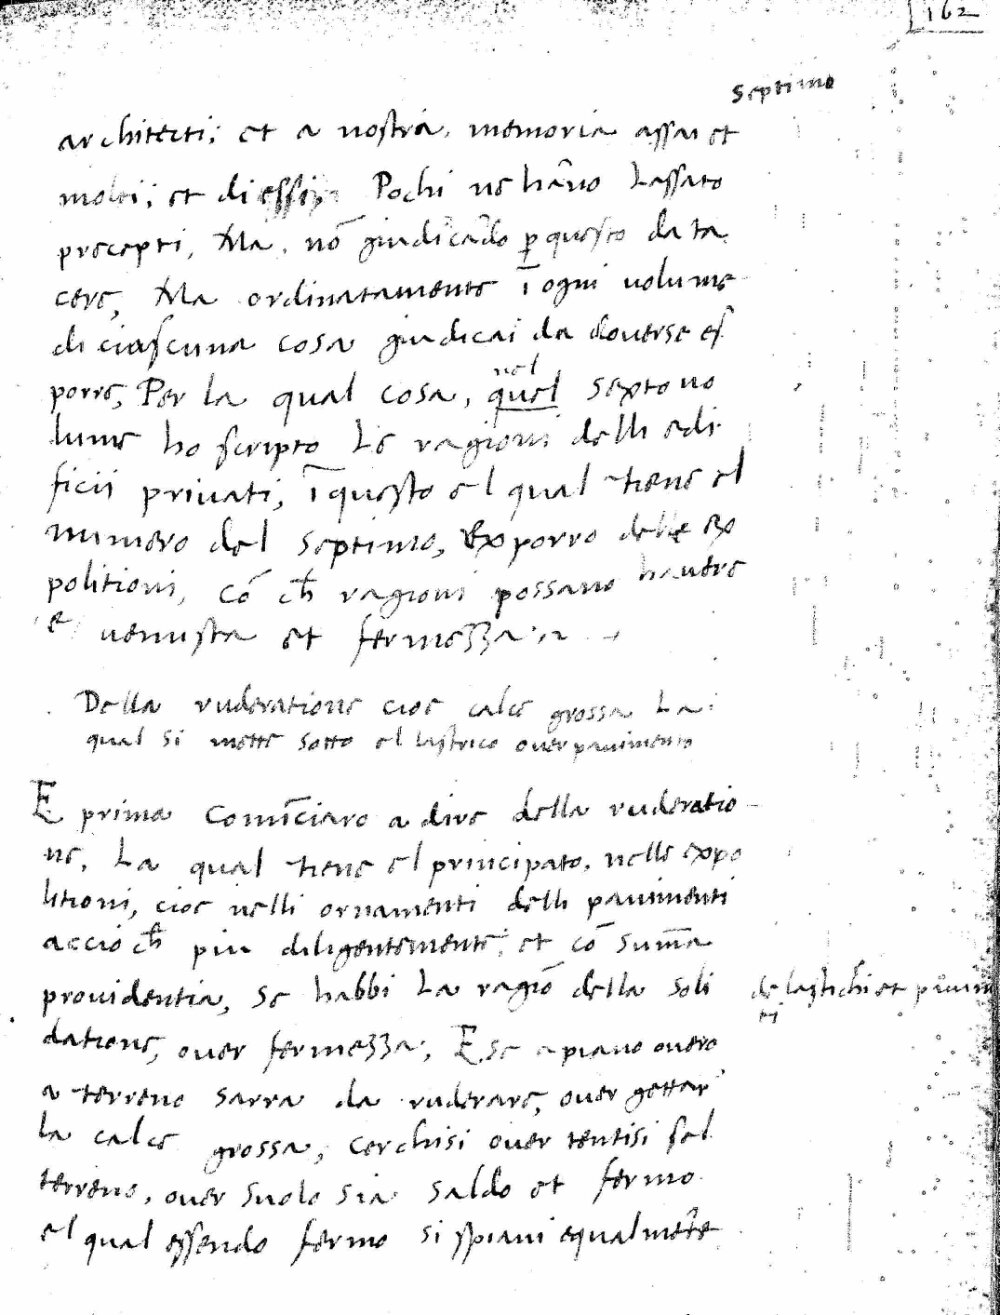 162
Septimo
architecti; et a nostra, memoria assai et
molti; et di essi Pochi ne hãno Lassato
precepti, Ma, nõ giudicãdo p questo da ta
cere, Ma ordinatamente ī ogni volume
di ciascuna cosa giudicai da doverse es
porre, Per la qual cosa, quel sexto uo
nel
lume ho scripto Le ragioni delli edi
ficii privati, ī questo el qual tiene el
numero del septimo, Exporro delle ex
politioni, cõ ch ragioni possano havere
e venusta et fermezza
Della ruderatione cioe calce grossa La
qual si mette sotto el lastrico over pavimento
E prima comīciaro a dire della ruderatio
ne, La qual tiene el principato, nelle expo
litioni, cioe nelli ornamenti delli pavimenti
accio ch piu diligentemente, et cõ suma
providentia, se habbi La ragiõ della soli
de lastrichi et pavim
ti
datione, over fermezza; E se a piano overo
a terreno sarra da ruderare, over gettar
la calce grossa, cerchisi over tentisi sel
terreno, over suolo sia saldo et fermo
el qual essendo fermo si spiani equalmẽte